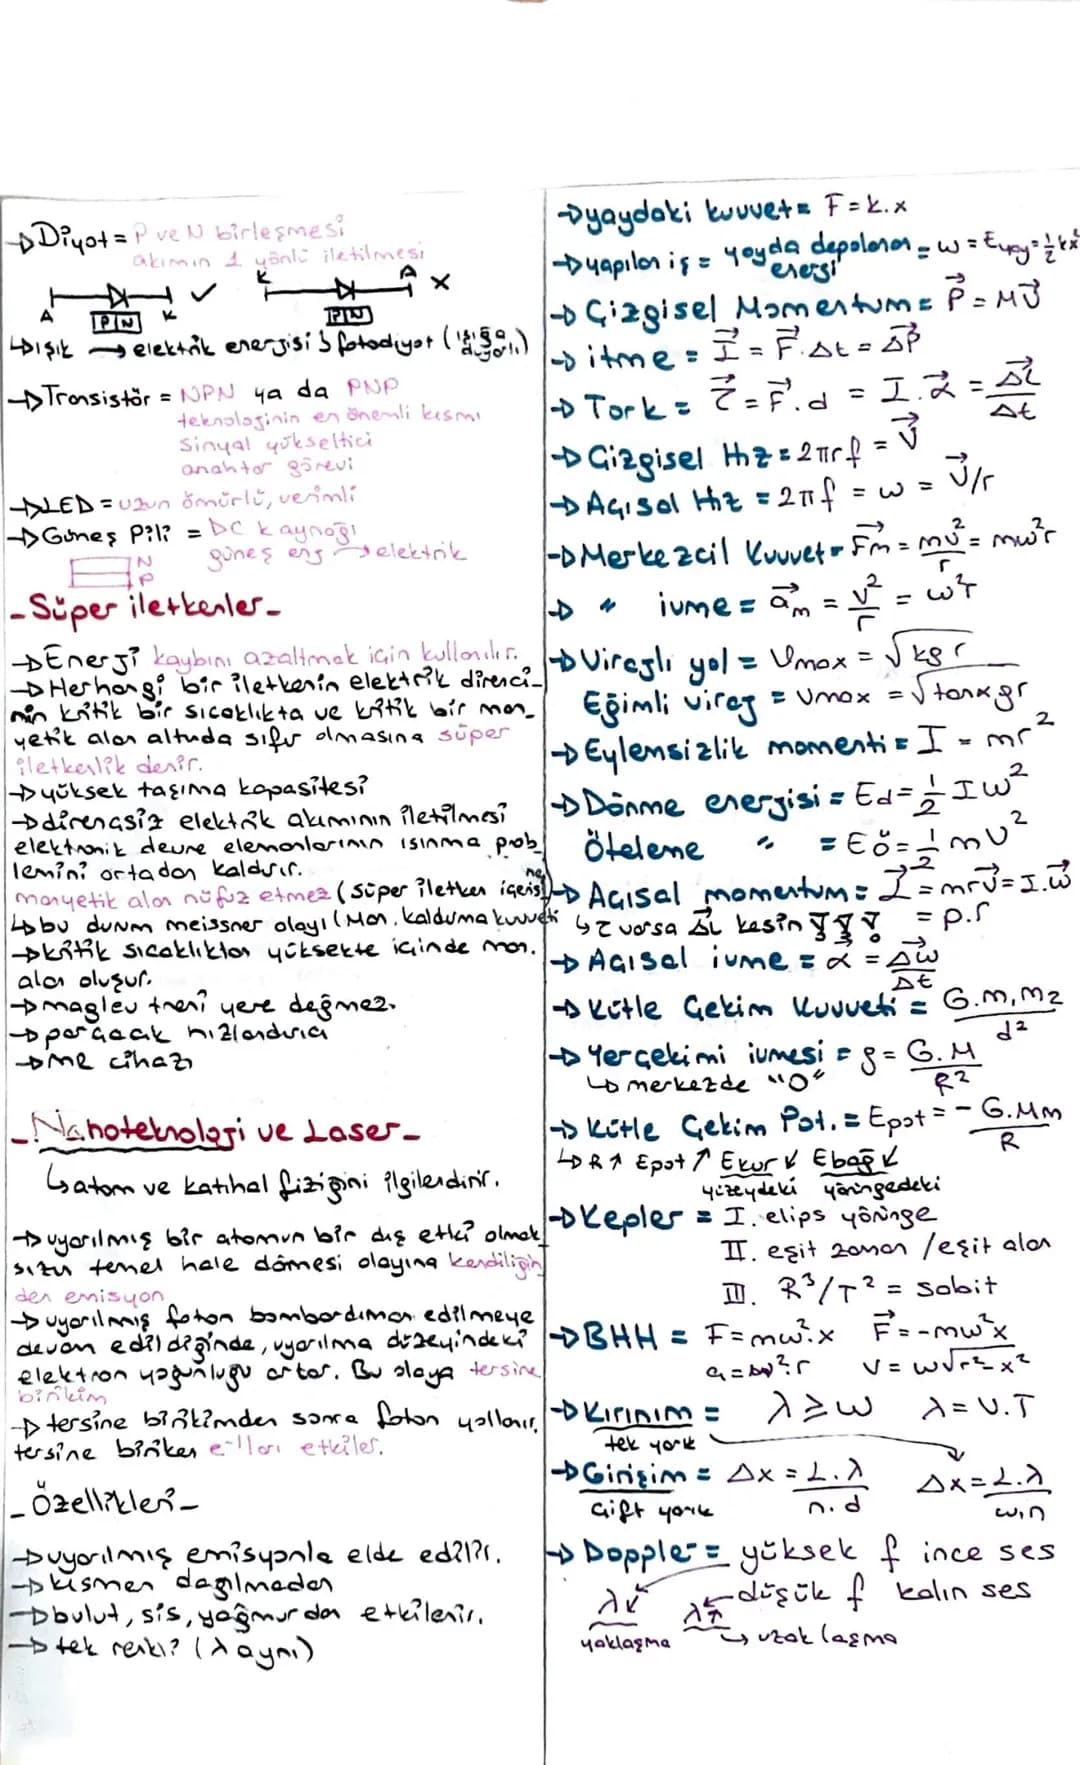 →Diyot = P ve N birleşmesi
akımın 1 yönlü iletilmesi
A P|N K ✓ K P|N A ×
↳ışık → elektrik enerjisi } fotodiyot (ışığa duyarlı)
→Transistör = NPN ya da PNP
teknolojinin en önemli kısmı
sinyal yükseltici
anahtar görevi
→LED = uzun ömürlü, verimli
→Güneş Pili = DC kaynağı
güneş enj → elektrik
N
P
-Süper iletkenler-
→Enerji kaybını azaltmak için kullanılır.
→Herhangi bir iletkenin elektrik direnci-
nin kritik bir sıcaklıkta ve kritik bir man-
yetik alan altında sıfır olmasına süper
iletkenlik denir.
→yüksek taşıma kapasitesi
→dirençsiz elektrik akımının iletilmesi
elektronik devre elemanlarının ısınma prob
lemini ortadan kaldırır.
manyetik alan nüfuz etmez (süper iletken içerisine)
↳bu durum meissner olayı (Man. kaldırma kuvveti
→kritik sıcaklıktan yüksekte içinde man.
alan oluşur.
→maglev treni yere değmez.
→parçacık hızlandırıcı
→MR cihazı
-Nanoteknoloji ve Laser-
↳atom ve katıhal fiziğini ilgilendirir.
→uyarılmış bir atomun bir dış etki olmak
sızın temel hale dönmesi olayına kendiliğin
den emisyon
→uyarılmış foton bombardımanı edilmeye
devam edildiğinde, uyarılma düzeyindeki
elektron yoğunluğu artar. Bu olaya tersine
birikim
→tersine birikimden sonra foton yollanır,
tersine biriken e⁻ları etkiler.
-Özellikleri-
→uyarılmış emisyonla elde edilir.
→kısmen dağılmadan
→bulut, sis, yağmurdan etkilenir.
→tek renkli (λ aynı)
→yaydaki kuvvet = F=k.x
→yapılan iş = yayda depolanan enerji = W = Eyay = ½kx²
→Çizgisel Momentum = P⃗ = MV⃗
→itme = I⃗ = F⃗.Δt = ΔP⃗
→Tork = τ⃗ = F⃗.d = I.α⃗ = ΔL⃗/Δt
→Çizgisel Hız = 2πrf = V⃗
→Açısal Hız = 2πf = w = V⃗/r
→Merkezcil Kuvvet = F⃗m = mv²/r = mw²r
→ " ivme = a⃗m = v²/r = w²r
→Virajlı yol = Vmax = √kgr
Eğimli viraj = Vmax = √tanαgr
→Eylemsizlik momenti = I = mr²
→Dönme enerjisi = Ed = ½Iw²
Öteleme " = Eö = ½mv²
→Açısal momentum = L⃗ = mrv⃗ = I.w⃗
↳τ varsa ΔL kesin !!! = p.r
→Açısal ivme = α = Δw⃗/Δt
→Kütle Çekim Kuvveti = G.m₁m₂/d²
→Yerçekimi ivmesi = g = G.M/R²
↳merkezde "0"
→Kütle Çekim Pot. = Epot = -G.Mm/R
↳R↑ Epot↑ Ekur↓ Ebağ↓
yüzeydeki yörüngedeki
→Kepler = I. elips yörünge
II. eşit zaman / eşit alan
III. R³/T² = sabit
→BHH = F=mw².x F⃗=-mw²x
a=w².r v=w√r²-x²
→Kırınım = λ≥w λ=V.T
tek yarık
→Girişim = Δx = L.λ/n.d Δx=L.λ/w.n
çift yarık
→Doppler = yüksek f ince ses
λ↓ λ↑ düşük f kalın ses
yaklaşma ↳uzaklaşma